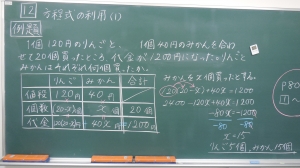 12 方程式の利用(1)
例題
1個120円のりんごと、1個40円のみかんを合わ
せて20個買ったところ、代金が1200円になった。りんごと
みかんはそれぞれ何個買ったか。
りんご みかん 合計
価格 120円 40円
個数 (20-x)コ xコ 20個
代金 120(20-x) + 40x = 1200
みかんをx個買ったとする。
120(20-x)+40x=1200
2400-120x+40x=1200
-80x=-1200
-80 -80
x=15
りんご5個、みかん15個
P80
1